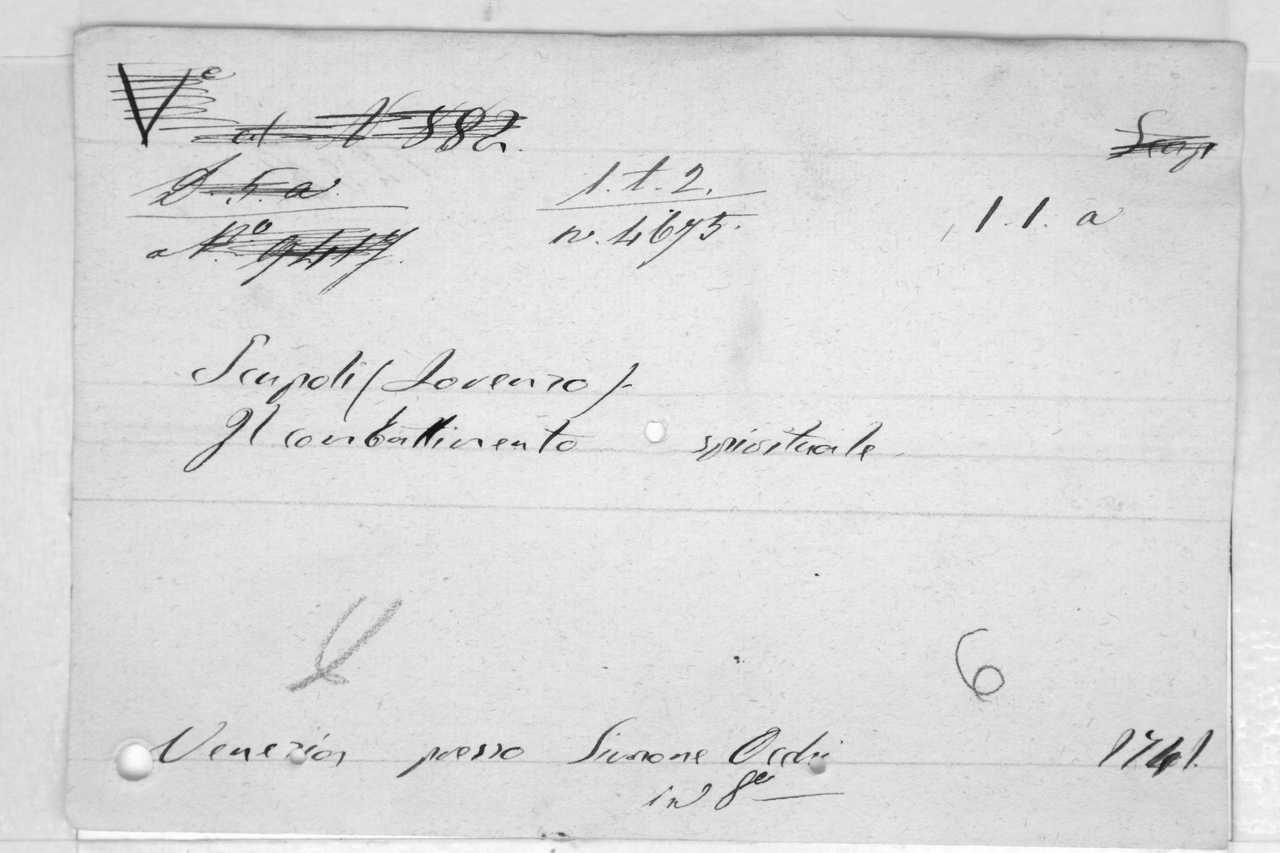 Vᵉ al N 882.
D. 5. a.
1. t. 2.
n. 4675.
1. 1. a
a N.º 9417.
Scupoli (Lorenzo).
Il combattimento spirituale
6
Venezia presso Simone Occhi 1741.
in 8º